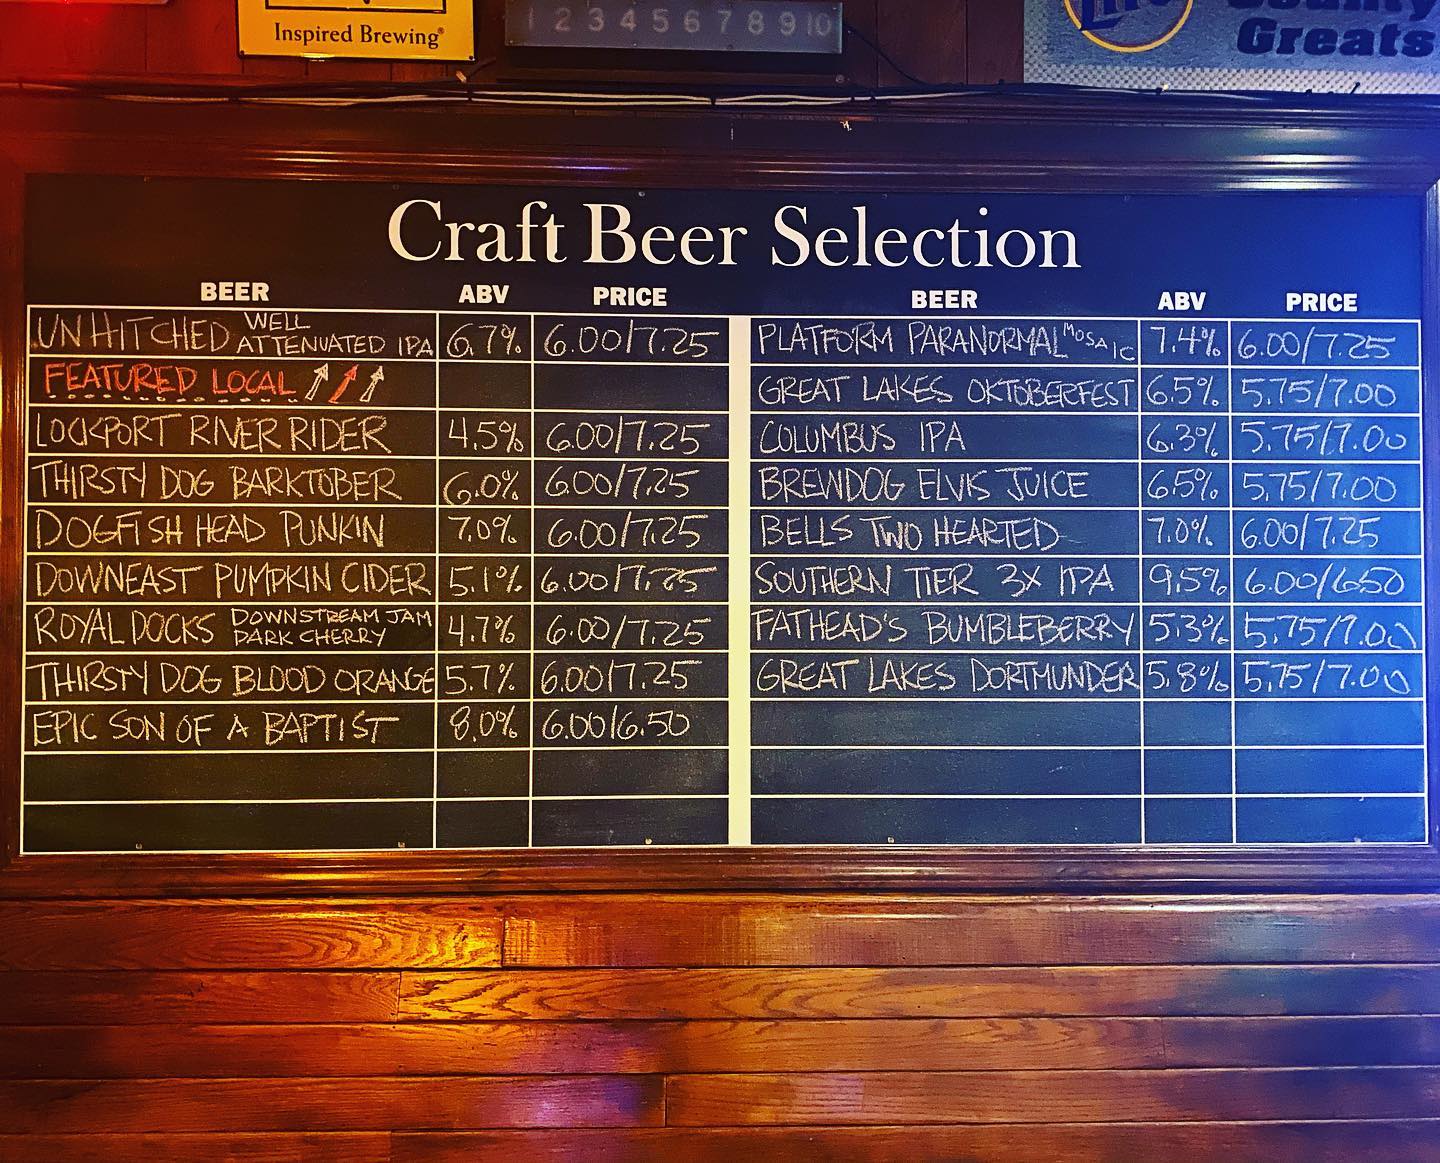 Inspired Brewing®
1 2 3 4 5 6 7 8 9 10
Lite
County
Greats
Craft Beer Selection
BEER ABV PRICE
UNHITCHED WELL ATTENUATED IPA 6.7% 6.00/7.25
FEATURED LOCAL
LOCKPORT RIVER RIDER 4.5% 6.00/7.25
THIRSTY DOG BARKTOBER 6.0% 6.00/7.25
DOGFISH HEAD PUNKIN 7.0% 6.00/7.25
DOWNEAST PUMPKIN CIDER 5.1% 6.00/7.25
ROYAL DOCKS DOWNSTREAM JAM DARK CHERRY 4.7% 6.00/7.25
THIRSTY DOG BLOOD ORANGE 5.7% 6.00/7.25
EPIC SON OF A BAPTIST 8.0% 6.00/6.50
BEER ABV PRICE
PLATFORM PARANORMAL MOSAIC 7.4% 6.00/7.25
GREAT LAKES OKTOBERFEST 6.5% 5.75/7.00
COLUMBUS IPA 6.3% 5.75/7.00
BREWDOG ELVIS JUICE 6.5% 5.75/7.00
BELLS TWO HEARTED 7.0% 6.00/7.25
SOUTHERN TIER 3X IPA 9.5% 6.00/6.50
FATHEAD'S BUMBLEBERRY 5.3% 5.75/7.00
GREAT LAKES DORTMUNDER 5.8% 5.75/7.00